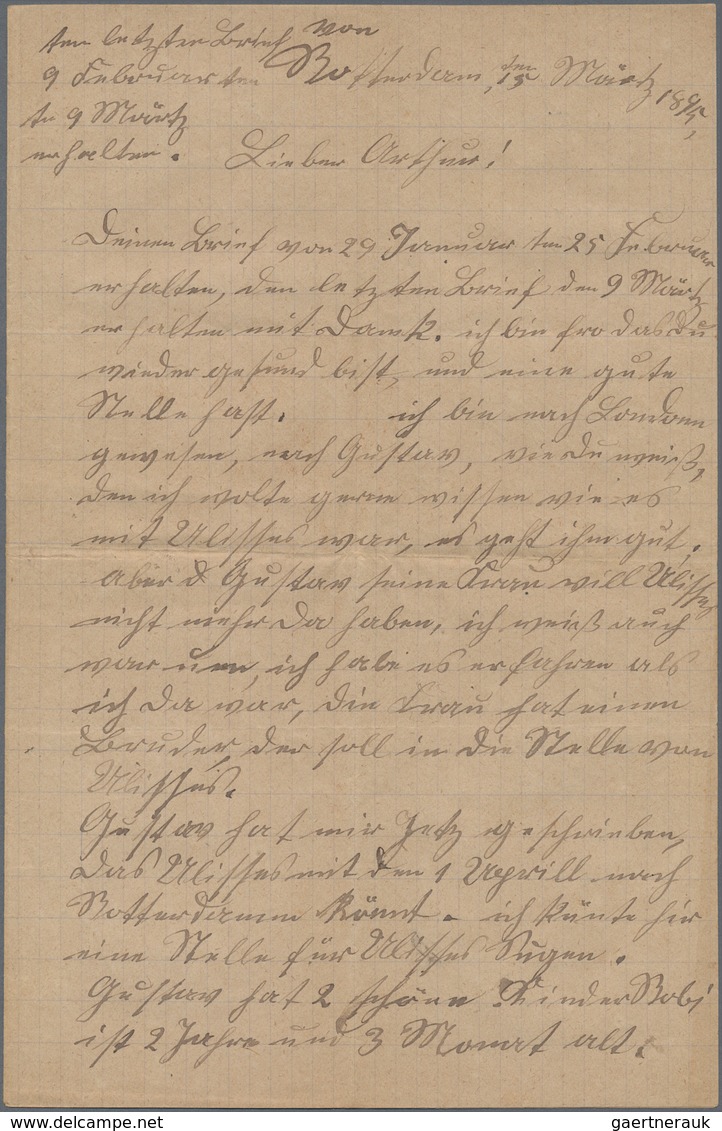 den letzten Brief von
9 Februar den
9 Märtz
erhalten.
Rotterdam, den 15 Märtz 1895,
Lieber Arthur!
Deinen Brief von 29 Januar den 25 Februar
erhalten, den letzten Brief den 9 Märtz
erhalten mit Dank. ich bin fro das Du
wieder gesund bist, und eine gute
Stelle hast. ich bin nach Londonn
gewesen, nach Gustav, wie Du weiß,
den ich wolte gerne wissen wie es
mit Ulisses war, es geht ihm gut,
aber d Gustav seine Frau will Ulisses
nicht mehr da haben, ich weiß auch
warum, ich habe es erfahren als
ich da war, die Frau hat einen
Bruder, der soll in die Stelle von
Ulisses.
Gustav hat mir Jetz geschrieben,
das Ulisses mit den 1 Aprill nach
Rotterdamm kömt. ich künte hir
eine Stelle für Ulisses Sugen.
Gustav hat 2 schöne Kinder Robi
ist 2 Jahre und 3 Monat alt.
www.delcampe.net
gaertnerauk